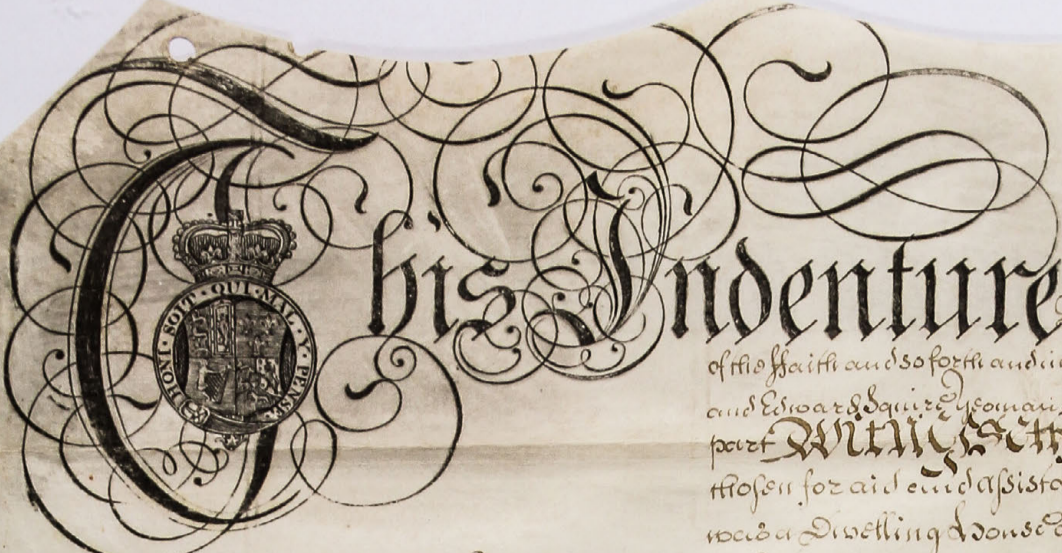 This Indenture
HONI · SOIT · QUI · MAL · Y · PENSE
of the ffaith and so forth and in
and Edward Squire Yeoman
part Witnesseth
chosen for aid and assista
was a Dwelling House